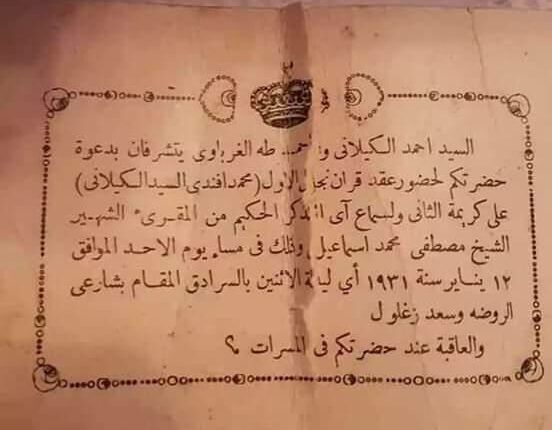 السيد احمد الكيلانى و محمد طه الغرباوى يتشرفان بدعوة
حضرتكم لحضور عقد قران نجل الاول (محمد افندى السيد الكيلانى)
على كريمة الثانى ولسماع آى الذكر الحكيم من المقرىء الشهير
الشيخ مصطفى محمد اسماعيل وذلك فى مساء يوم الاحد الموافق
١٢ يناير سنة ١٩٣١ أي ليلة الاثنين بالسرادق المقام بشارعى
الروضه وسعد زغلول
والعاقبة عند حضرتكم فى المسرات